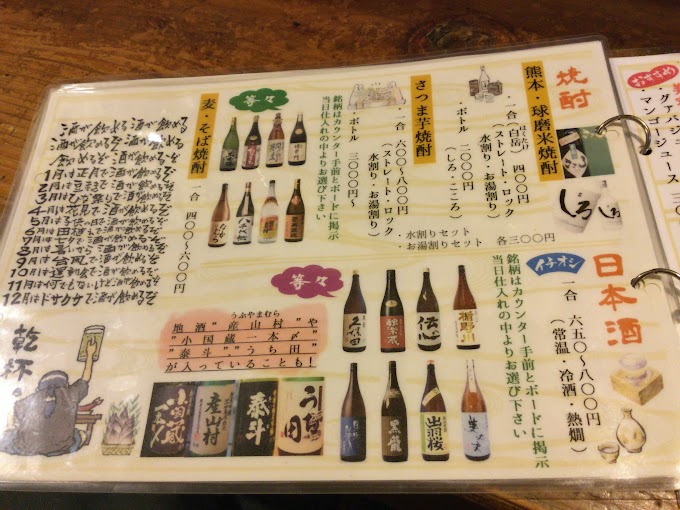 焼酎
熊本・球磨米焼酎
・一合（白岳）四〇〇円
はくたけ
（ストレート・ロック
水割り・お湯割り）
・ボトル 二〇〇〇円
（しろ・こころ）
さつま芋焼酎
・一合 六〇〇～八〇〇円
（ストレート・ロック
水割り・お湯割り）
・ボトル 三〇〇〇円～
・水割りセット
・お湯割りセット 各三〇〇円
銘柄はカウンター手前とボードに掲示
当日仕入れの中よりお選び下さい
等々
麦・そば焼酎
一合 四〇〇～六〇〇円
しろ
日本酒
イチオシ
一合 六五〇～八〇〇円
（常温・冷酒・熱燗）
銘柄はカウンター手前とボードに掲示
当日仕入れの中よりお選び下さい
等々
久保田
伝心
黒龍
出羽桜
うぶやまむら
地酒“産山村”や
“小国蔵一本〆”
“泰斗”“うち田”
が入っていることも！
小国蔵
産山村
泰斗
酒が飲める酒が飲める
酒が飲めるぞ
1月は正月で酒が飲めるぞ
2月は豆まきで酒が飲めるぞ
3月はひな祭りで酒が飲めるぞ
4月は花見で酒が飲めるぞ
5月は子供の日で酒が飲めるぞ
6月は田植えで酒が飲めるぞ
7月は七夕で酒が飲めるぞ
8月は暑いから酒が飲めるぞ
9月は台風で酒が飲めるぞ
10月は運動会で酒が飲めるぞ
11月は何でもないけど酒が飲めるぞ
12月はドサクサで酒が飲めるぞ
乾杯
おすすめ
・グァバジュ
・マンゴージュース